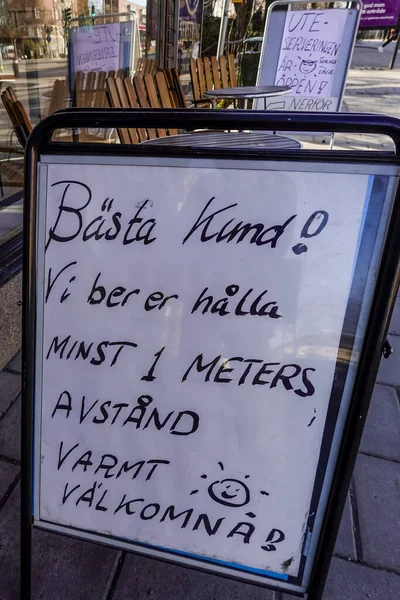 UTE-
SERVERINGEN
ÄR
ÖPPEN!
Bästa Kund!
Vi ber er hålla
MINST 1 METERS
AVSTÅND
VARMT
VÄLKOMNA!